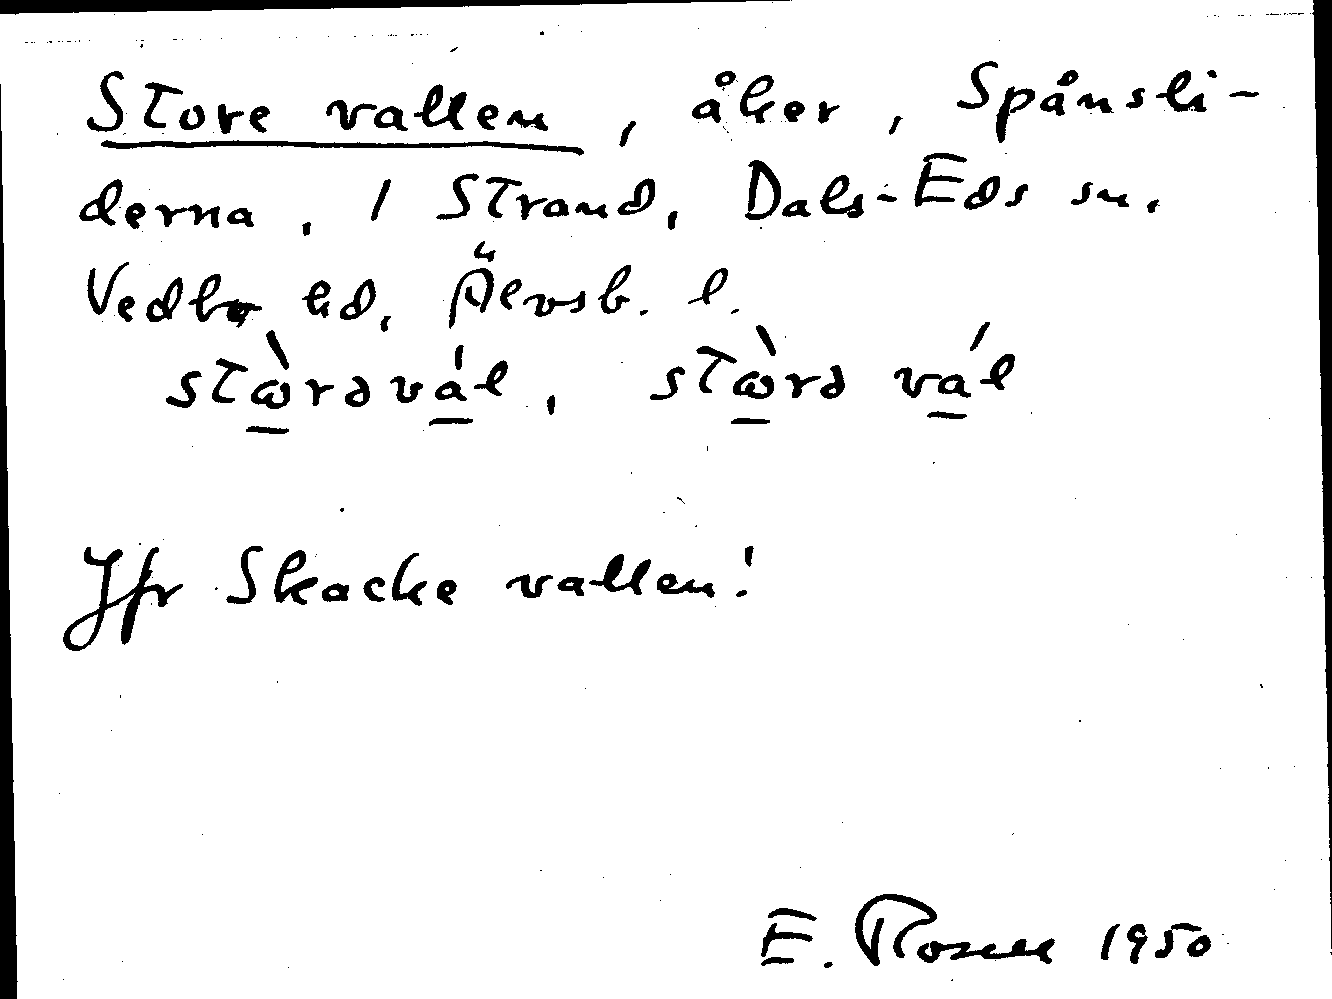 Store vallen, åker, Spånsli-
derna, 1 Strand, Dals-Eds sn.
Vedbo hd, Älvsb. l.
stὼrəvál, stὼrə vál
Jfr Skacke vallen!
E. Rosell 1950